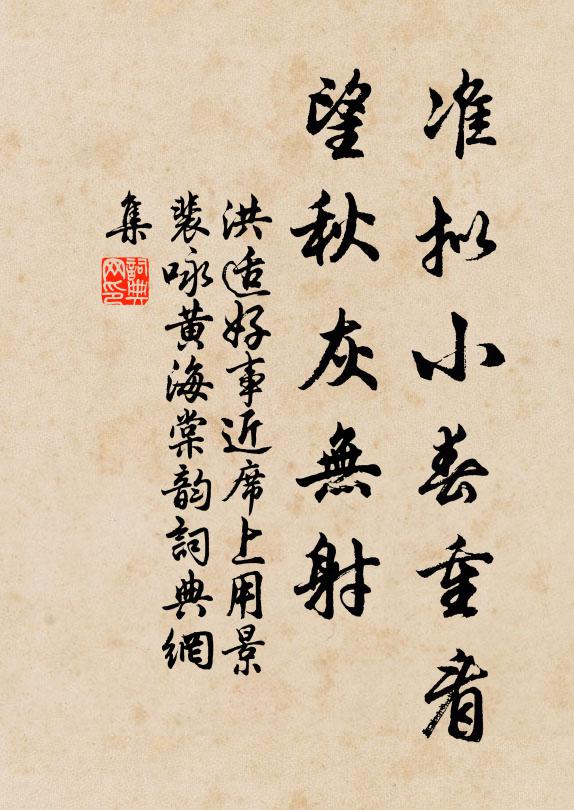 准拟小春重看
望秋灰無射
洪适好事近席上用景
裴咏黄海棠韵詞典網
集
詞典
网印